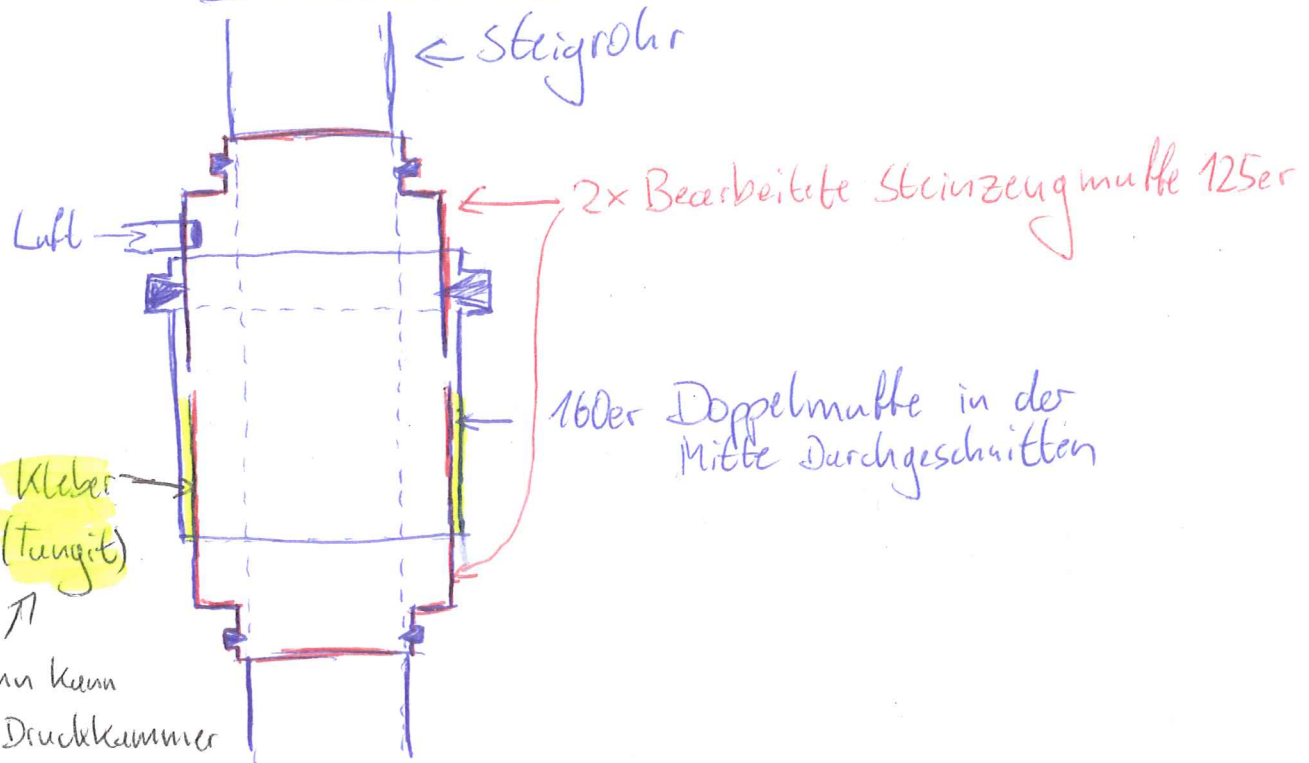 Steigrohr
2x Bearbeitete Steinzeugmuffe 125er
Luft
160er Doppelmuffe in der
Mitte Durchgeschnitten
Kleber
(Tangit)
kann
Druckkammer